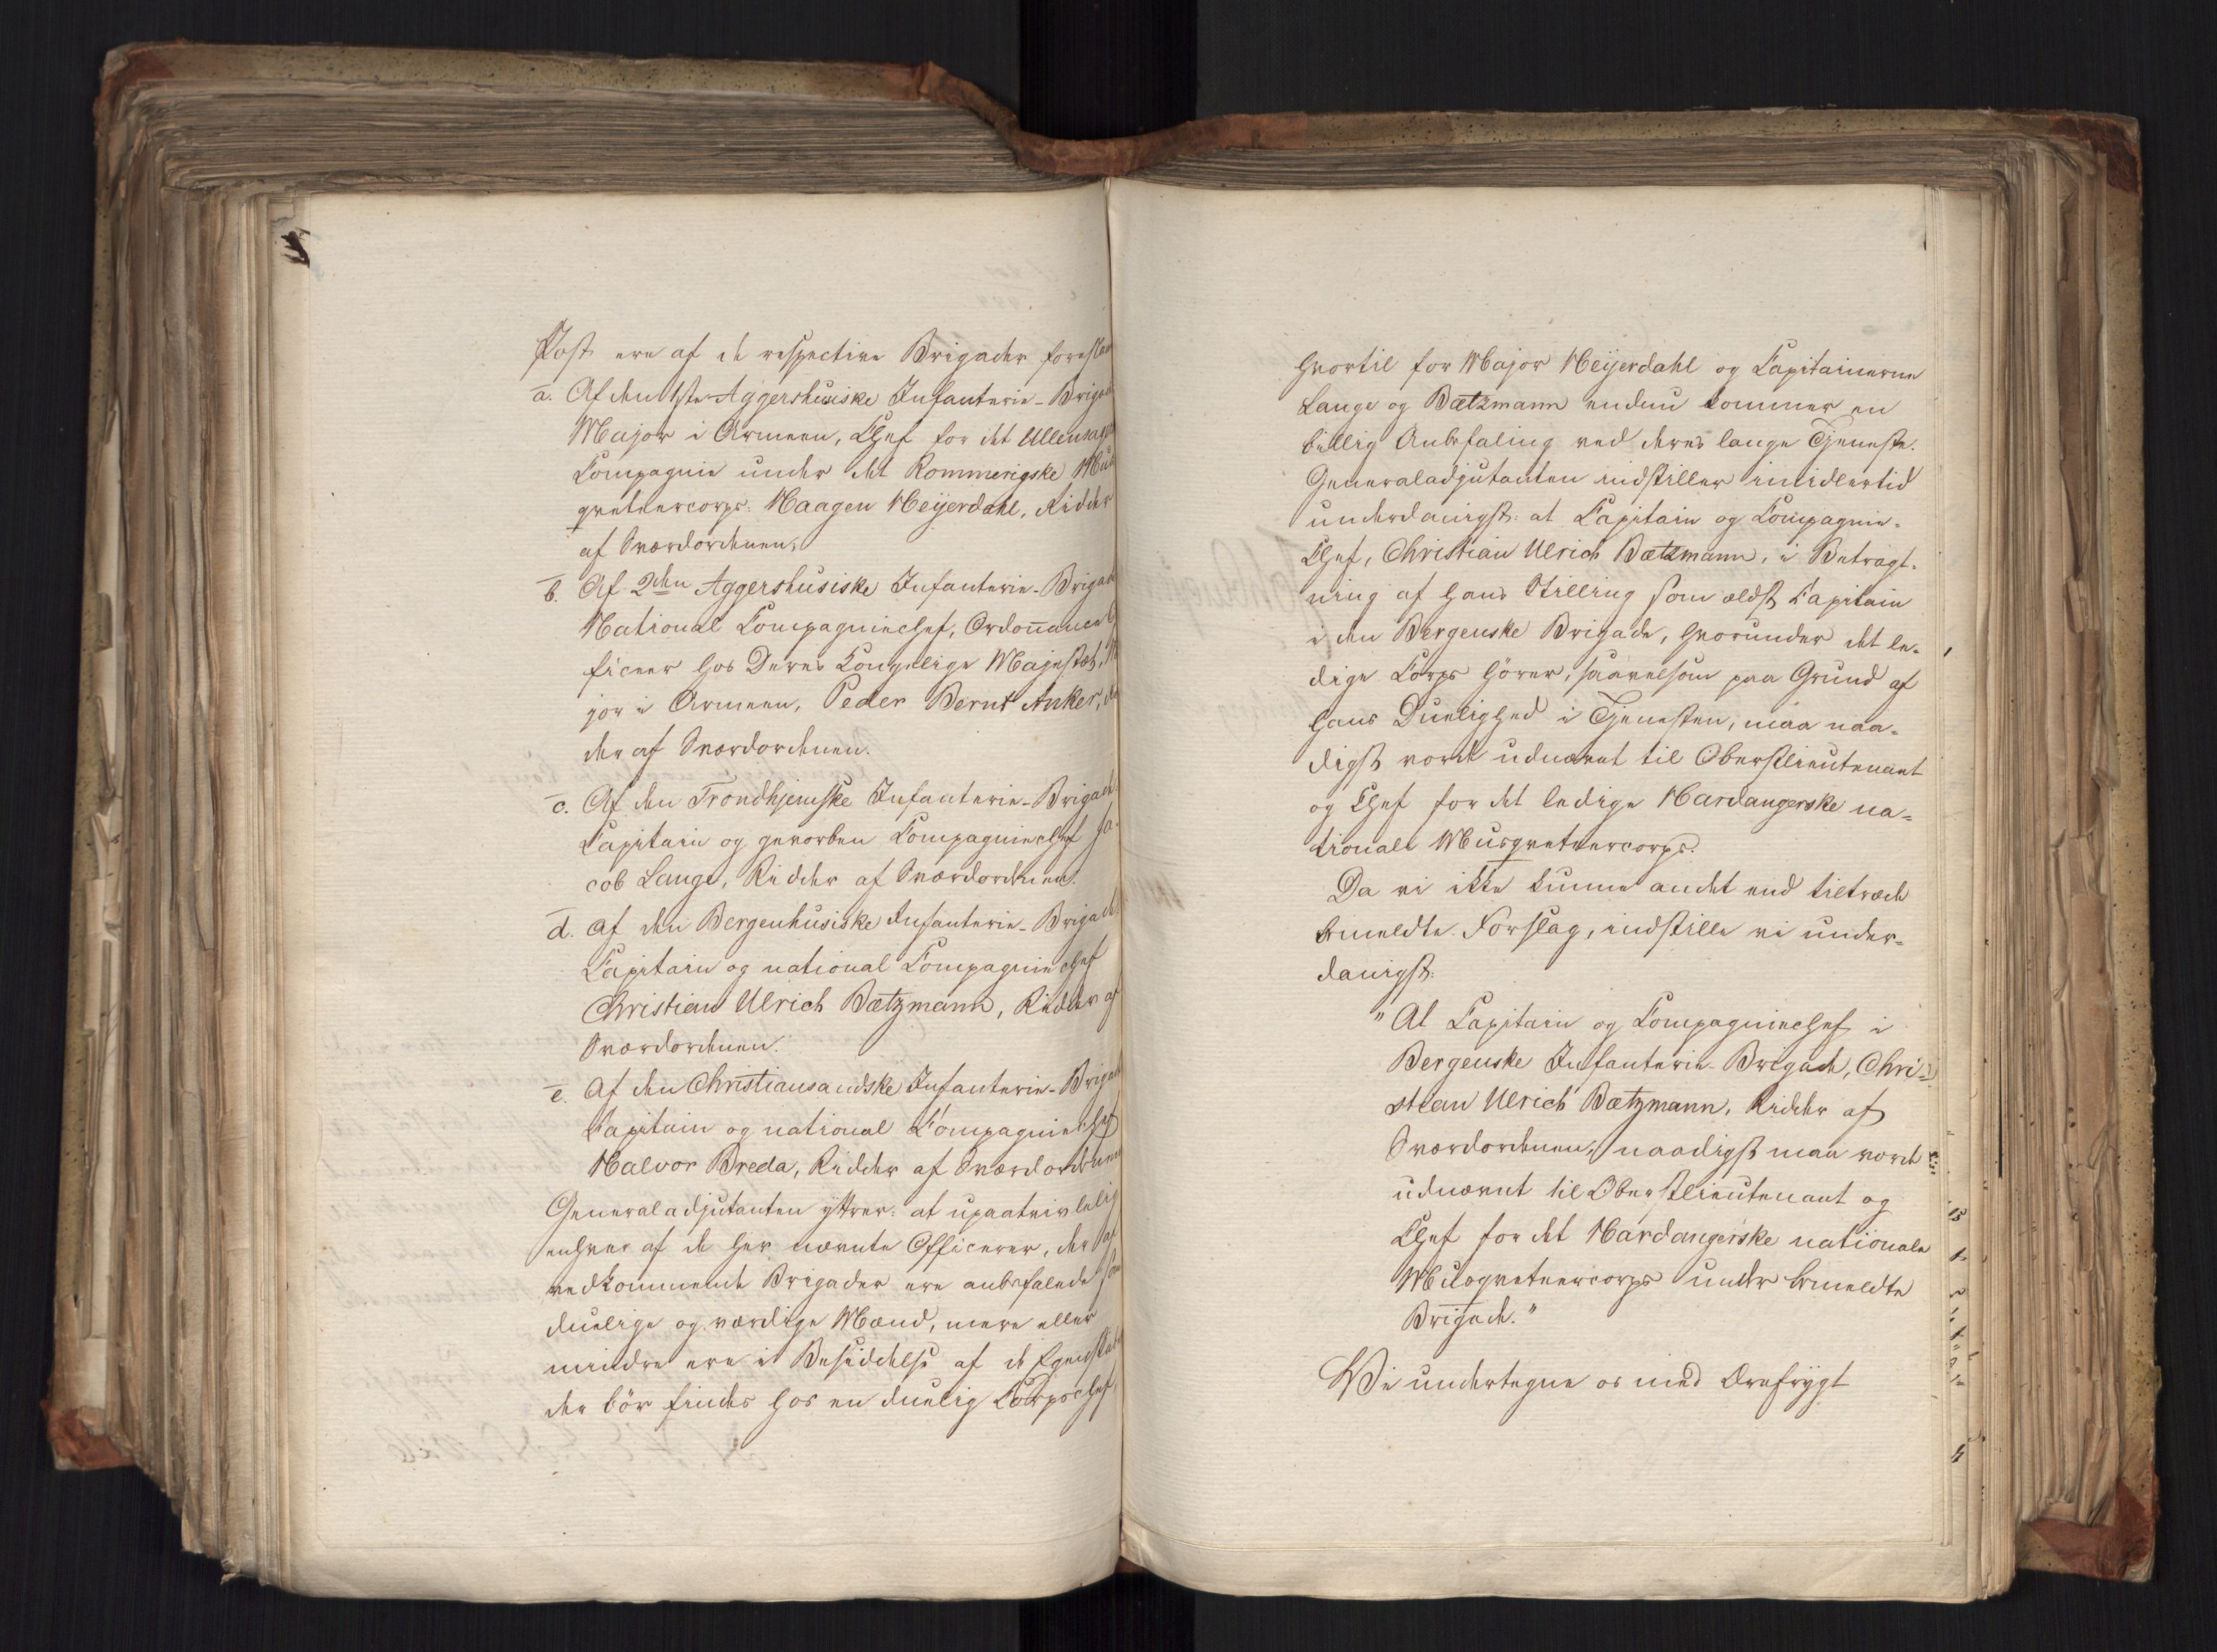 Post ere af de respective Brigader foreslaa
a. Af den 1ste Aggershusiske Infanterie-Brigad
Major i Armeen, Chef for det Ullensager
Compagnie under det Rommerigske Mus
qveteercorps: Haagen Heÿerdahl, Ridder
af Sværdordenen,
b. Af 2den Aggershusiske Infanterie-Brigade
National Compagniechef, Ordonnance
ficeer hos Deres Kongelige Majestæt,
jor i Armeen, Peder Bernt Anker,
der af Sværdordenen.
c. Af den Trondhjemske Infanterie-Brigade
Capitain og gevorben Compagniechef Ja-
cob Lange, Ridder af Sværdordenen.
d. af den Bergenhusiske Infanterie-Brigade
Capitain og national Compagniechef
Christian Ulrich Bætzmann, Ridder af
Sværdordenen.
e. af den Christiansandske Infanterie-Brigade
Capitain og national Compagniechef
Halvor Breda, Ridder af Sværdordenen
Generaladjutanten yttrer: at upaatvivlelig
enhver af de her nævnte Officerer, der af
vedkommende Brigader ere anbefalede som
duelige og værdige Mænd, mere eller
mindre ere i Besiddelse af de Egenskabe
der bör findes hos en duelig Corpschef,
hvortil for Major Heÿerdahl og Capitainerne
Lange og Bætzmann endnu kommer en
billig Anbefaling ved deres lange Tjeneste.
Generaladjutanten indstiller imidlertid
underdanigst: at Capitain og Compagnie-
Chef, Christian Ulrich Bætzmann, i Betragt-
ning af hans Stilling som ældst Capitain
i den Bergenske Brigade, hvorunder det le-
dige Corps hörer, saavelsom paa Grund af
hans Duelighed i Tjenesten, maa naa-
digst vorde udnævnt til Oberstlieutenant
og Chef for det ledige Hardangerske na-
tionale Musqveteercorps.
Da vi ikke kunne andet end tiltræde
bemeldte Forslag, indstille vi under-
danigst:
"At Capitain og Compagniechef i
Bergenske Infanterie-Brigade, Chri-
stian Ulrich Bætzmann, Ridder af
Sværdordenen, naadigst maa vorde
udnævnt til Oberstlieutenant og
Chef for det Hardangerske nationale
Musqveteercorps under bemeldte
Brigade."
Vi undertegne os med Ærefrygt